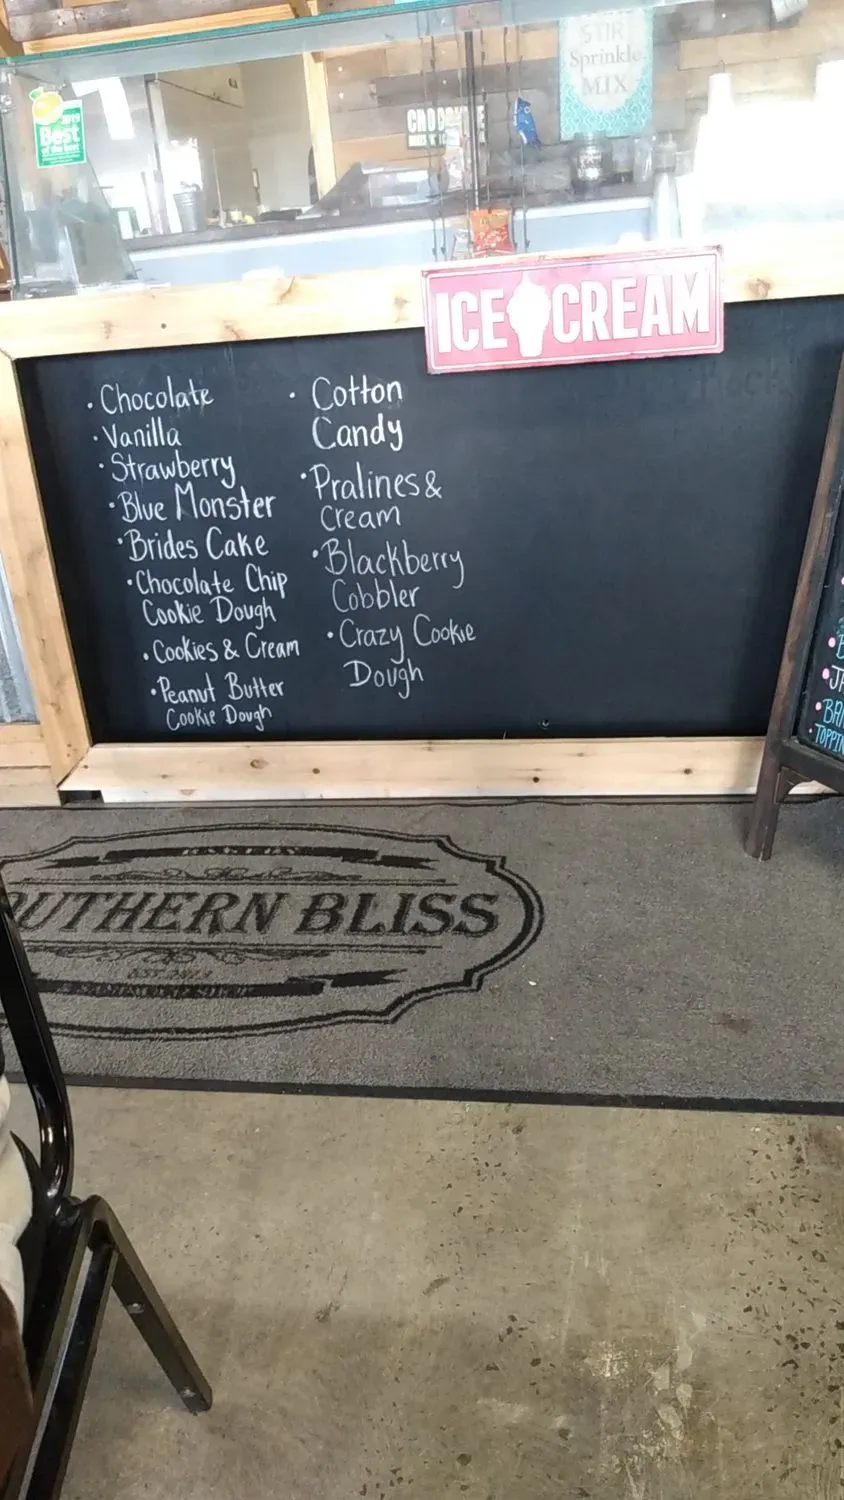 STIR
Sprinkle
MIX
2019
Best
of the best
ICE CREAM
• Chocolate
• Vanilla
• Strawberry
• Blue Monster
• Brides Cake
• Chocolate Chip
Cookie Dough
• Cookies & Cream
• Peanut Butter
Cookie Dough
• Cotton
Candy
• Pralines &
Cream
• Blackberry
Cobbler
• Crazy Cookie
Dough
BAKERY
OUTHERN BLISS